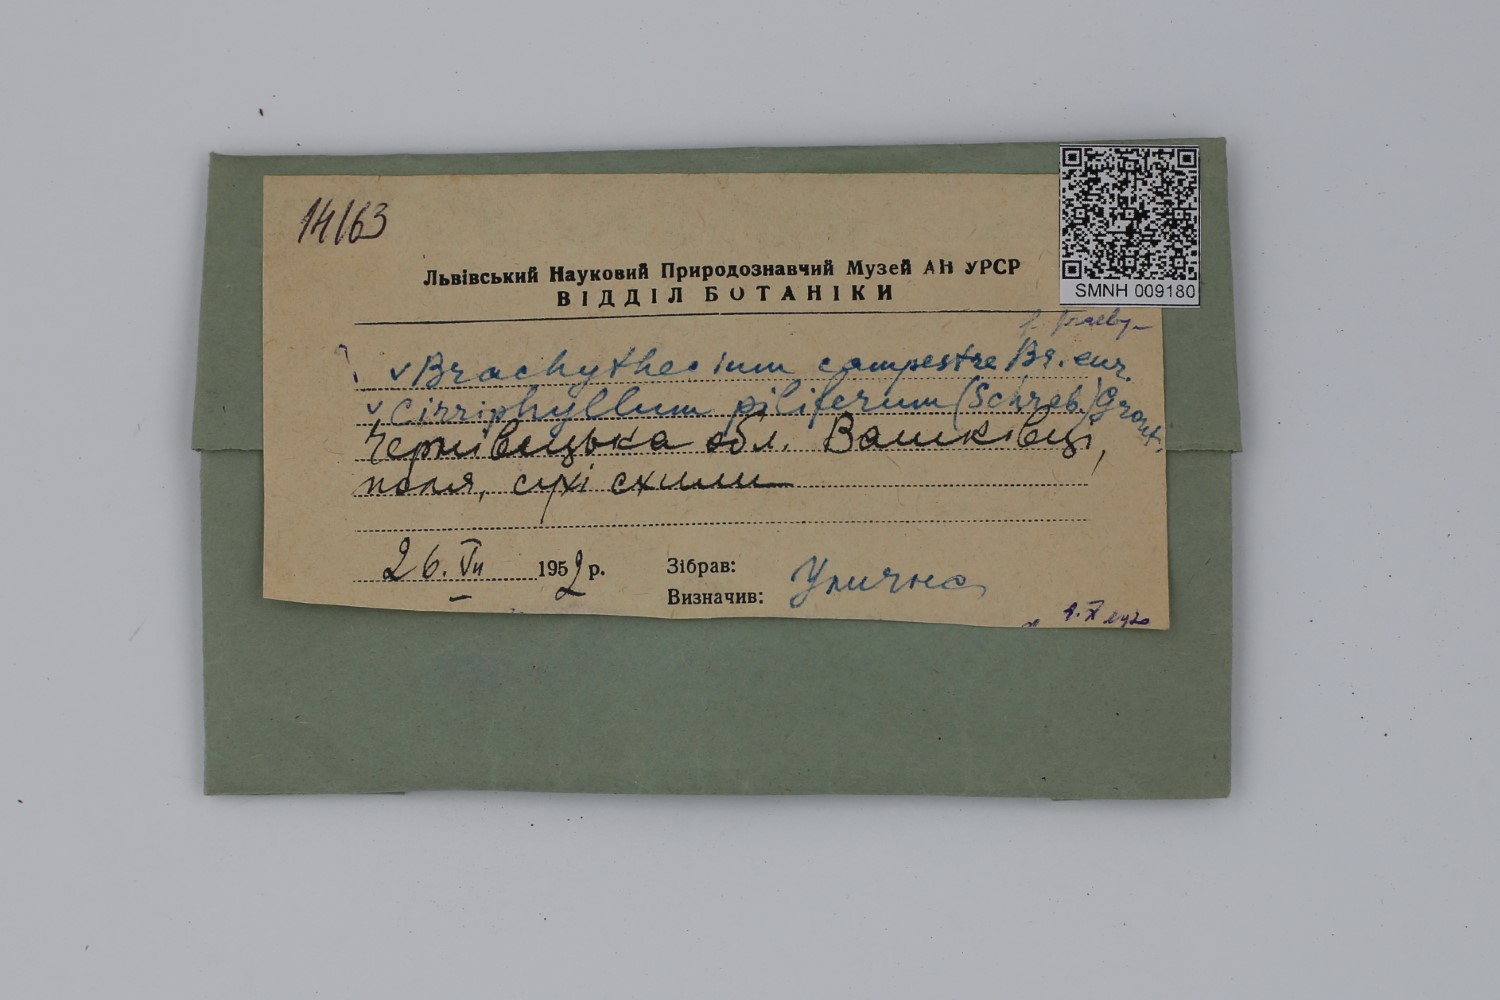 14163
SMNH 009180
Львівський Науковий Природознавчий Музей АН УРСР
ВІДДІЛ БОТАНІКИ
v Brachythecium campestre Br. eur.
v Cirriphyllum piliferum (Schreb.) Grout.
Чернівецька обл. Вашківці,
поля, сухі схили
26. VII 1952 р.
Зібрав:
Визначив: Улична